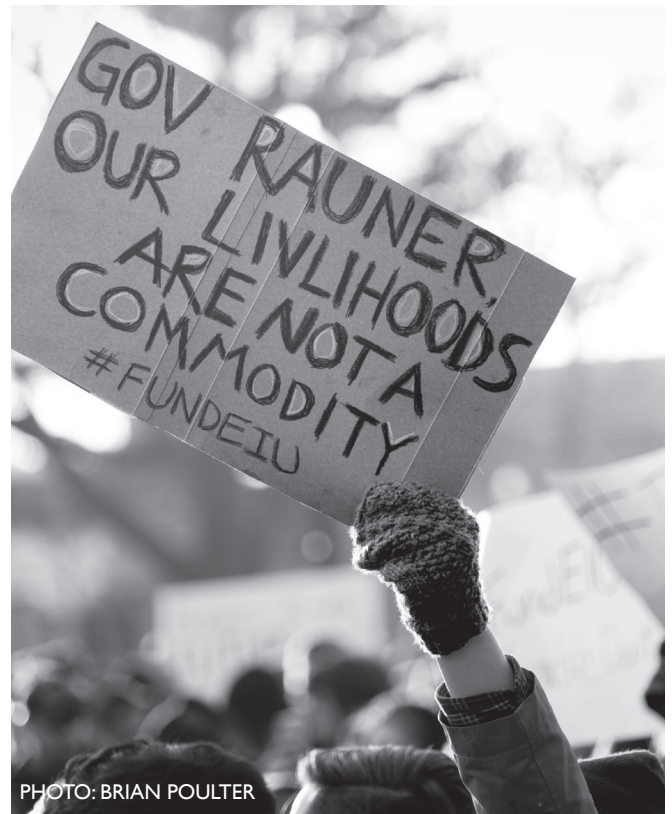 GOV RAUNER,
OUR LIVLIHOODS
ARE NOT A
COMMODITY
#FUNDEIU
PHOTO: BRIAN POULTER